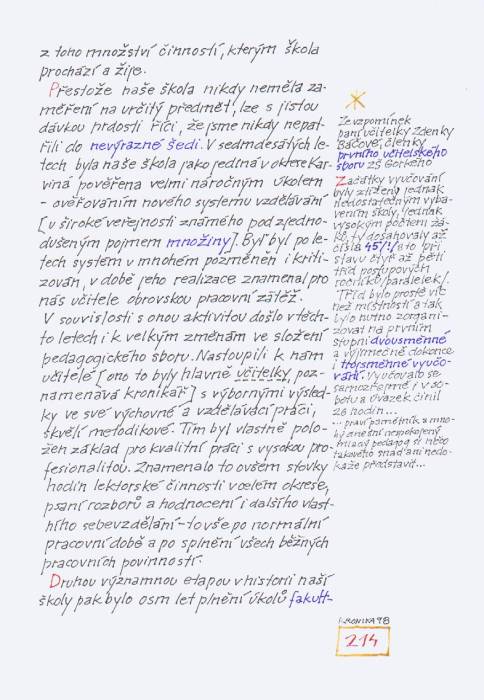 z toho množství činností, kterým škola
prochází a žije.
Přestože naše škola nikdy neměla za-
měření na určitý předmět, lze s jistou
dávkou hrdosti říci, že jsme nikdy nepat-
řili do nevýrazné šedi. V sedmdesátých le-
tech byla naše škola jako jediná v okrese Kar-
viná pověřena velmi náročným úkolem
- ověřováním nového systému vzdělávání
[v široké veřejnosti známého pod zjedno-
dušeným pojmem množiny]. Byť byl po le-
tech systém v mnohém pozměněn i kriti-
zován, v době jeho realizace znamenal pro
nás učitele obrovskou pracovní zátěž.
V souvislosti s onou aktivitou došlo v těch-
to letech i k velkým změnám ve složení
pedagogického sboru. Nastoupili k nám
učitelé [ono to byly hlavně učitelky, poz-
namenává kronikář] s výbornými výsled-
ky ve své výchovné a vzdělávací práci,
skvělí metodikové. Tím byl vlastně polo-
žen základ pro kvalitní práci s vysokou pro-
fesionalitou. Znamenalo to ovšem stovky
hodin lektorské činnosti v celém okrese,
psaní rozborů a hodnocení i dalšího vlast-
ního sebevzdělání - to vše po normální
pracovní době a po splnění všech běžných
pracovních povinností.
Druhou významnou etapou v historii naší
školy pak bylo osm let plnění úkolů fakult-
Ze vzpomínek
paní učitelky Zdenky
Bačové, členky
prvního učitelského
sboru ZŠ Gorkého
Začátky vyučování
byly ztíženy jednak
nedostatečným vyba-
vením školy, jednak
vysokým počtem žá-
ků, ty dosahovaly až
čísla 45/!/ a to při
stavu čtyř až pěti
tříd postupových
ročníků/paralelek/.
Tříd bylo prostě víc
než místností a tak
bylo nutno zorgani-
zovat na prvním
stupni dvousměnné
a výjimečně dokonce
i trojsměnné vyučo-
vání. Vyučovalo se
samozřejmě i v so-
botu a úvazek činil
28 hodin...
... praví pamětník a mno-
hý dnešní nespokojený
mladý pedagog si něco
takového snad ani nedo-
káže představit...
KRONIKA 98
214